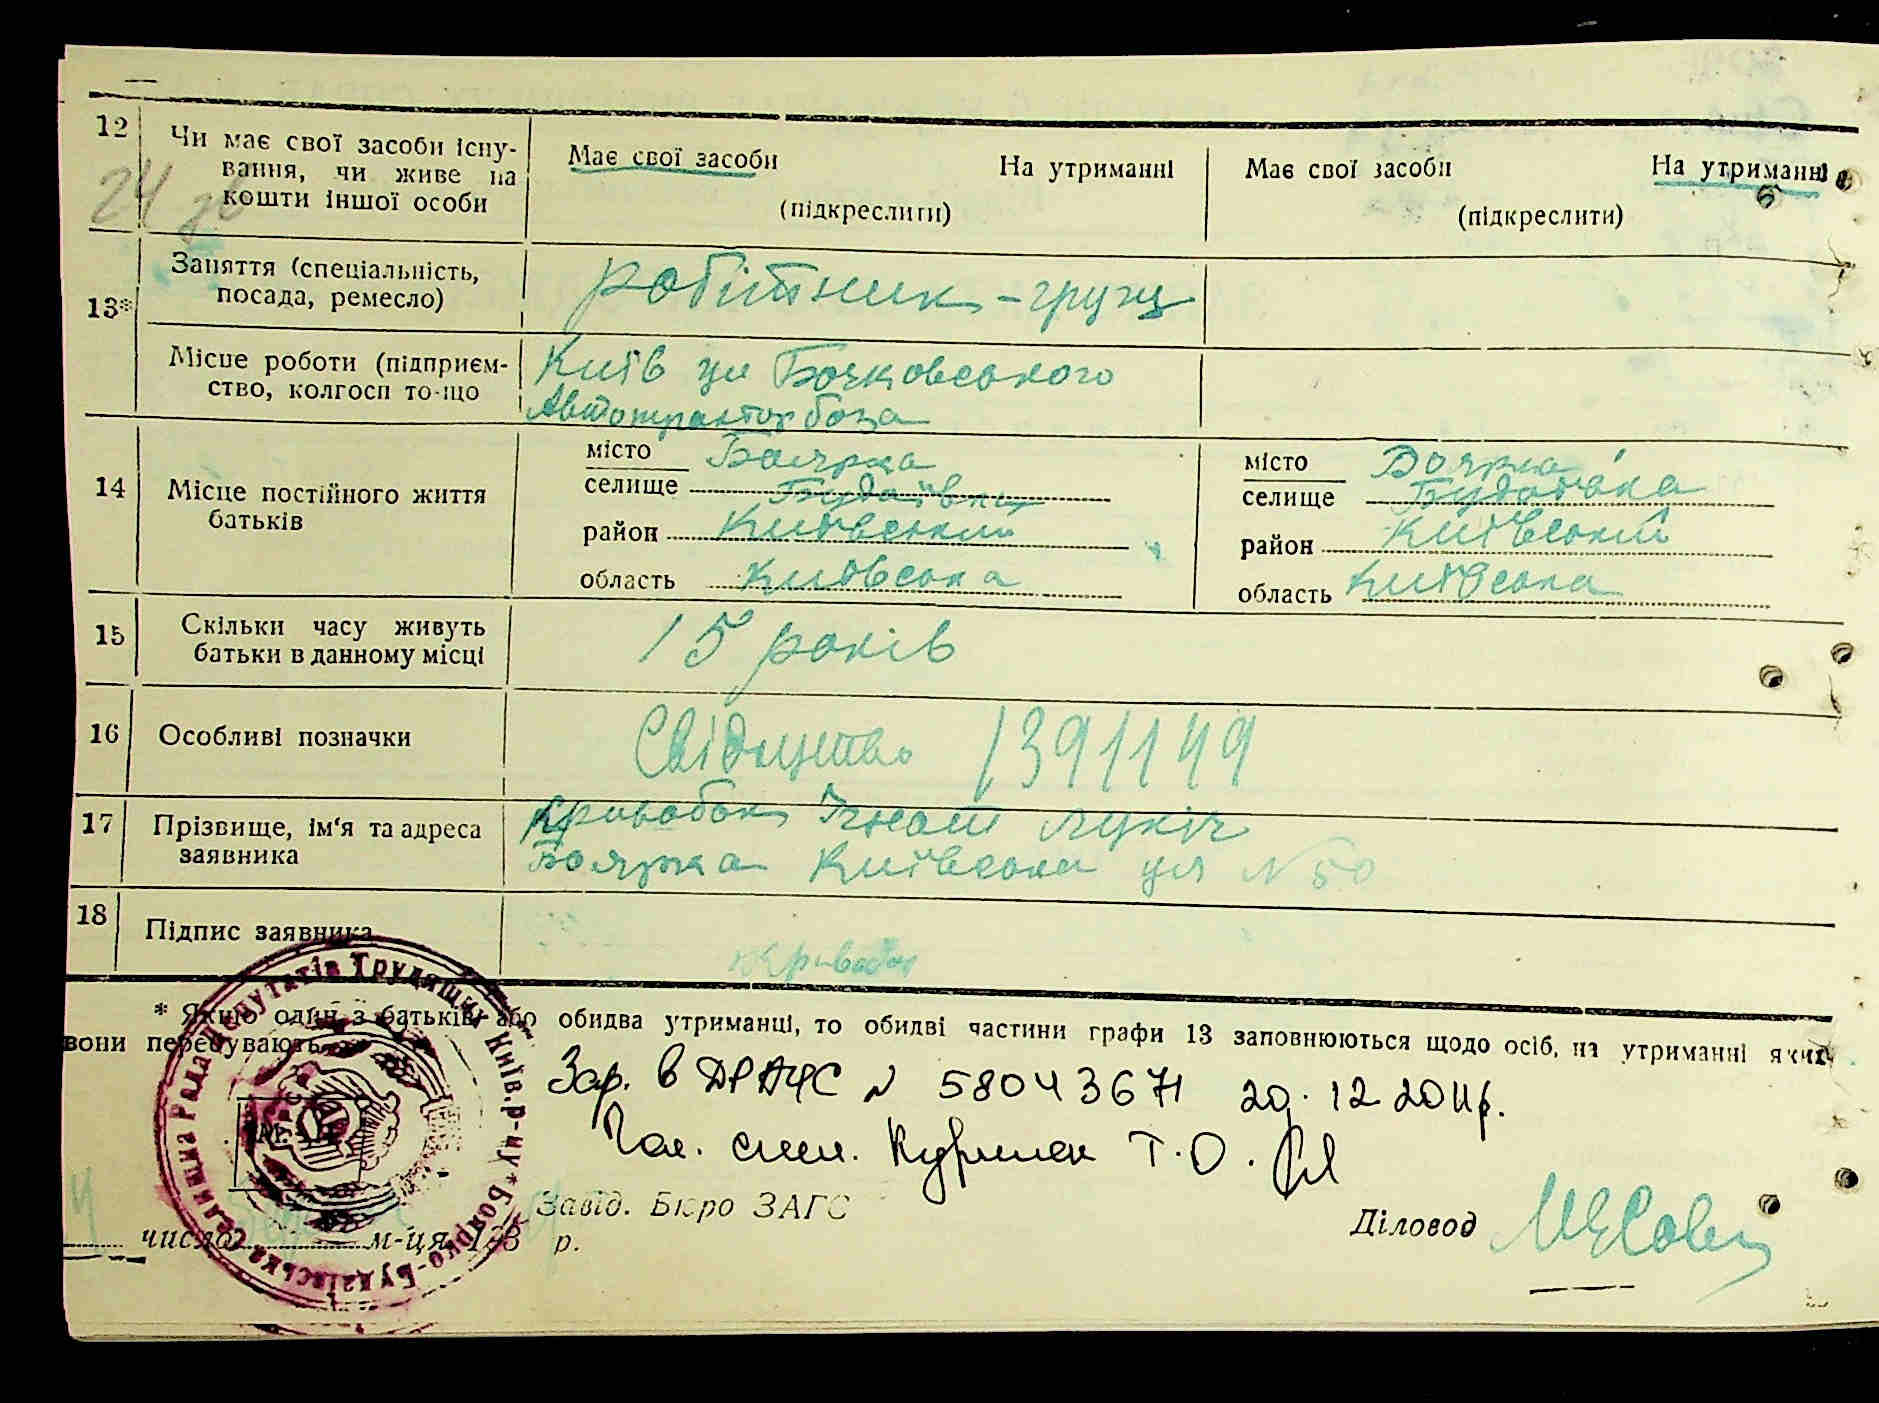 12
Чи має свої засоби існу-
вання, чи живе на
кошти іншої особи
Має свої засоби На утриманні
(підкреслити)
Має свої засоби На утриманні
(підкреслити)
24
13*
Заняття (спеціальність,
посада, ремесло)
робітник - грузч
Місце роботи (підприєм-
ство, колгосп то-що
Київ ул
Автотрактор база
14
Місце постійного життя
батьків
місто Боярка
селище Будаївка
район Київський
область Київська
місто Боярка
селище Будаївка
район Київський
область Київська
15
Скільки часу живуть
батьки в данному місці
15 років
16
Особливі позначки
Свідоцтво 1391149
17
Прізвище, ім'я та адреса
заявника
Кривобок Ігнат Лукіч
Боярка Київська ул N 50
18
Підпис заявника
Кривобок
* Якщо один з батьків або обидва утриманці, то обидві частини графи 13 заповнюються щодо осіб, на утриманні яких
вони перебувають
Зар. в ДРАЦС № 58043671 20. 12 2011р.
Гол. спец. Т.О.
Завід. Бюро ЗАГС
Діловод
число м-ця 193 р.
Селищна Рада Депутатів Трудящих Київ. р-ну * Боярко-Будаївська